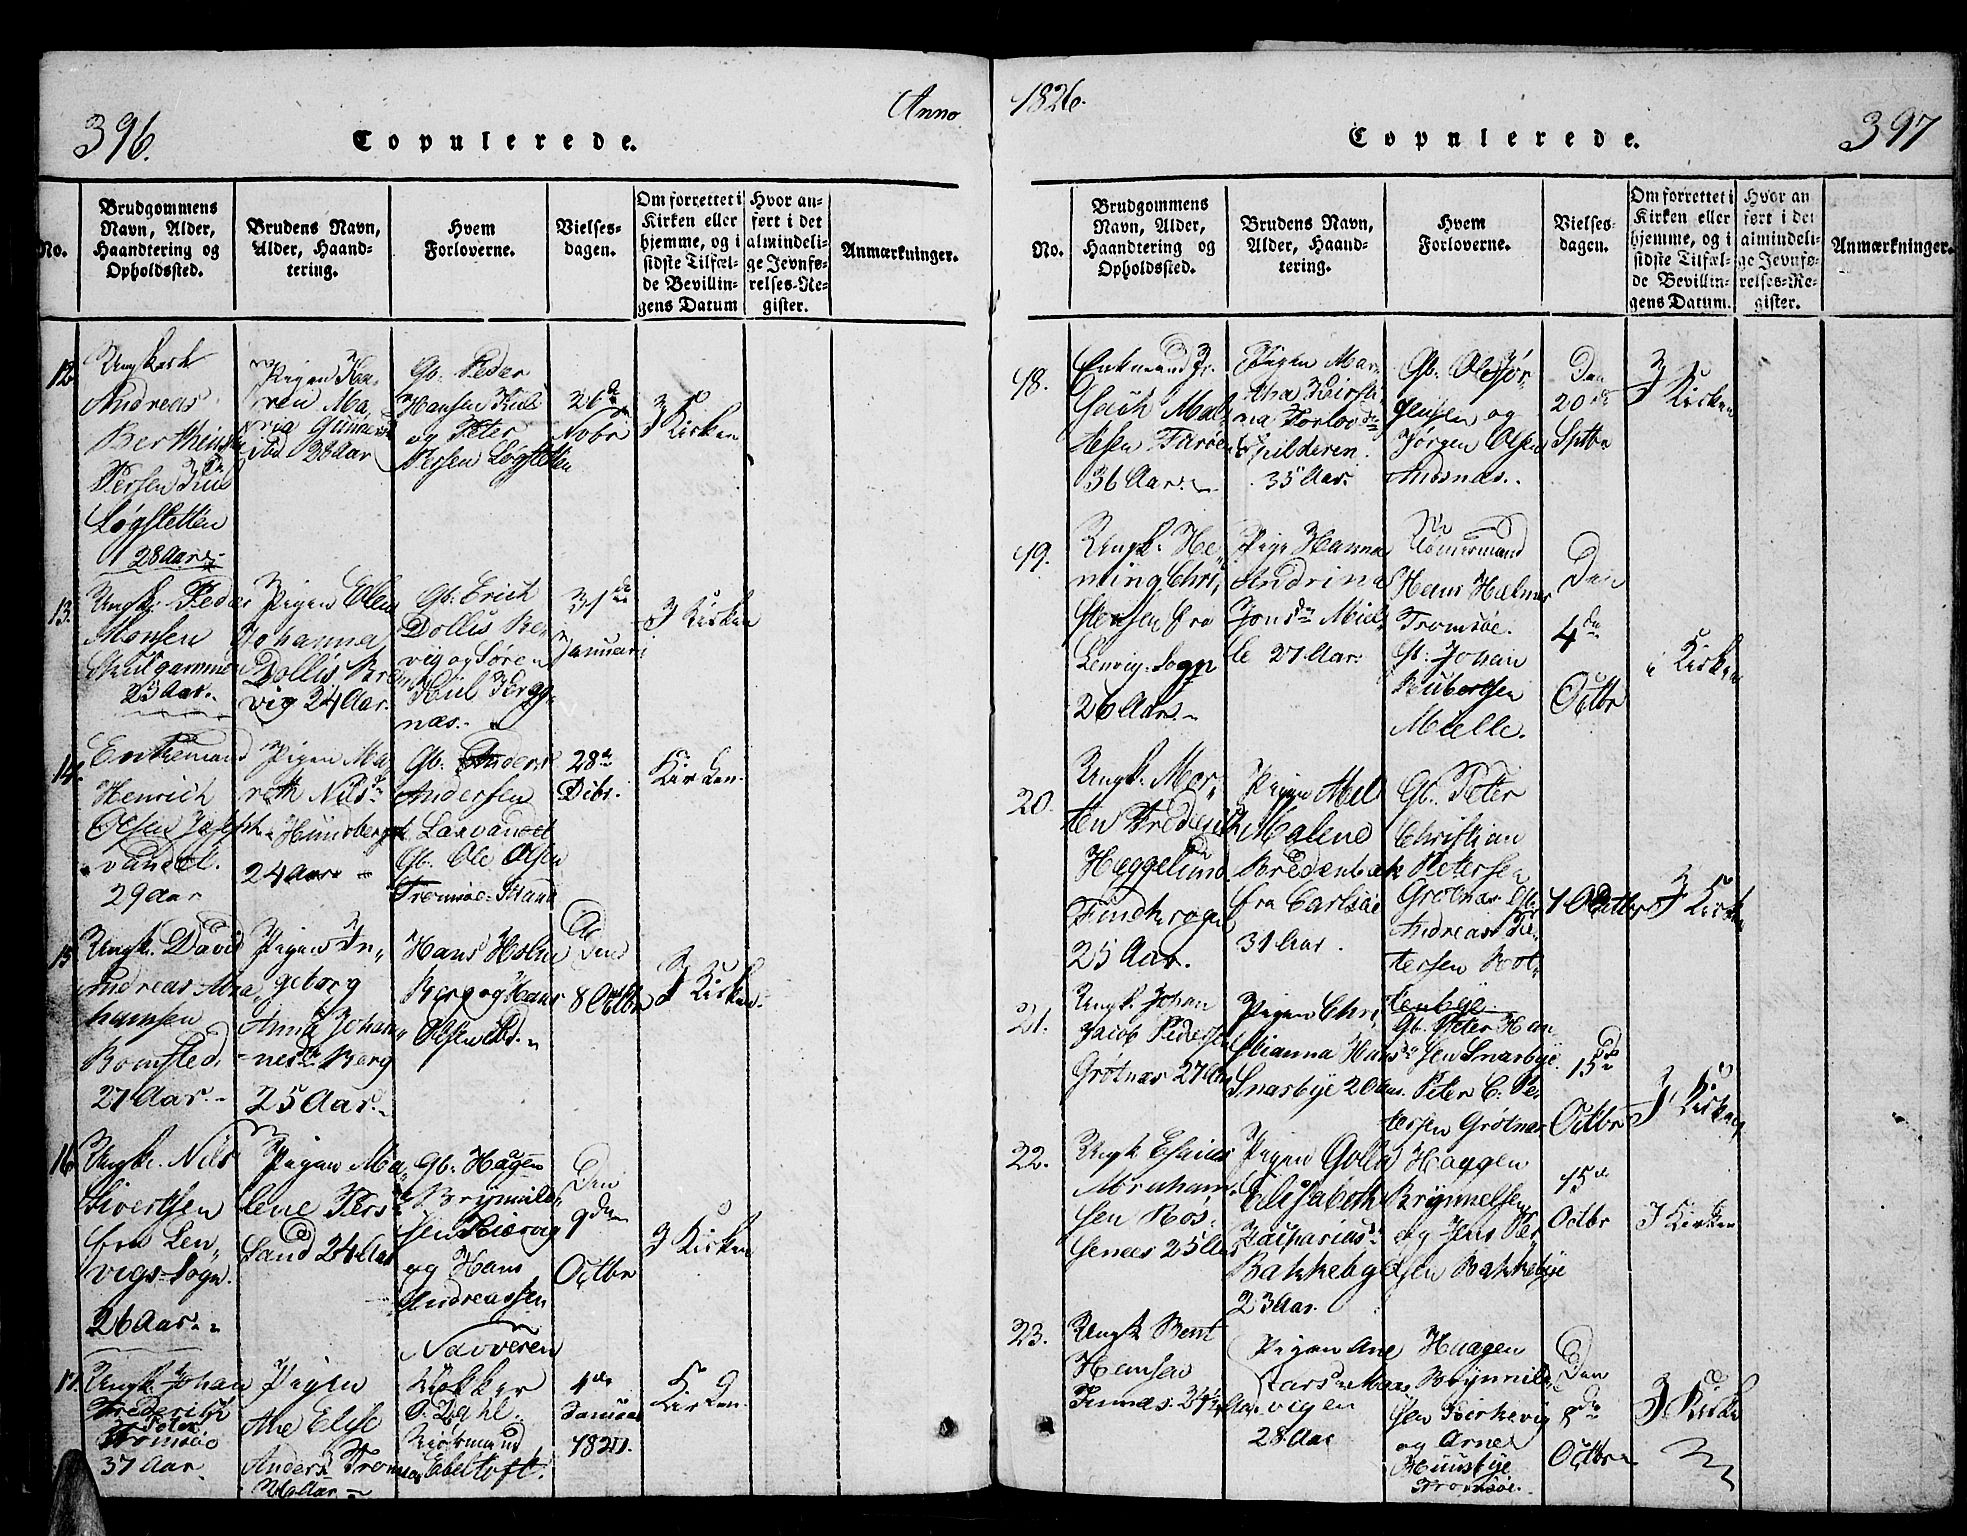 396.
Anno
Copulerede.
No.
Brudgommens
Navn, Alder,
Haandtering og
Opholdssted.
Brudens Navn,
Alder, Haand-
tering.
Hvem
Forloverne.
Vielses-
dagen.
Om forrettet i
Kirken eller
hjemme, og i
sidste Tilfæl-
de Bevillin-
gens Datum
Hvor an-
ført i det
almindeli-
ge Jevnfø-
relses-Re-
gister.
Anmærkninger.
12.
Ungkarl
Andreas
Persen
Løgstetten
28 Aar
Pigen Ka-
ren Ma-
ria
Gb. Peder
Hansen
og Peter
Persen Løgstetten
26de
Novbr
I Kirken
13.
Ungk. Peder
Monsen
23 Aar.
Pigen Ellen
Johanna
Dollis
vig 24 Aar.
Gb. Erich
Dollis
vig og Søren
næs.
31
Januari
I Kirken
14.
Enkemand
Henrich
Olsen Joseph
vandet.
29 Aar
Pigen Ma
reth Nilsd
Hundberg
24 Aar
Gb. Anders
Andersen
Larvandet
Gb. Ole Olsen
Tromsøe
28de
Dcbr.
Kirken.
15
Ungk. David
Andreas Abra
hamsen
Bomsted.
27 Aar.
Pigen In-
geborg
Anna Johan
nesd Berg
25 Aar.
Hans Holm
Berg og Hans
Olsen ibd.
Den
8 Octbr
I Kirken.
16.
Ungk. Nils
Sivertsen
fra Len,
vigs Sogn.
26 Aar.
Pigen Ma,
lene Pers
Sand 24 Aar
Gb. Hagen
Brynnild,
sen
og Hans
Andreassen
Navveren
Den
9den
Octbr
I Kirken
17.
Ungk. Johan
Frederik
Tromsøe
37 Aar.
Pigen
Ane Else
Anders Tromsøe
Aar.
Klokker
Dahl.
Kiøbmand
Ebeltoft.
4de
Januar
Kirken.
1826.
397
Copulerede.
No.
Brudgommens
Navn, Alder,
Haandtering og
Opholdssted.
Brudens Navn,
Alder, Haand-
tering.
Hvem
Forloverne.
Vielses-
dagen.
Om forrettet i
Kirken eller
hjemme, og i
sidste Tilfæl-
de Bevillin-
gens Datum.
Hvor an
ført i det
almindeli-
ge Jevnfø-
relses-Re-
gister.
Anmærkninger.
18.
Enkemand
36 Aar.
Pigen Mar-
tha Kirsti-
na
35 Aar.
Gb. Ole Jør-
gensen og
Jørgen Olsen
Andsnæs.
Den
20de
Sptbr
I Kirken
19.
Ungk. He-
ning Chri,
stensen fra
Lenvig Sogn
26 Aar.
Pige Hanna
Andrina
Jonsd Miel,
le 27 Aar.
Tømermand
Hans
Tromsøe.
Johan
Hubertsen
Mielle.
Den
4de
Octbr
i Kirken
20.
Ungk. Mor-
ten Frederik
Hæggelund
Findkrogen
25 Aar.
Pigen
Malene
Bredenbæk
fra Carlsøe
31 Aar.
Gb. Peter
Christian
Petersen
Grøtnæs. Gb.
Andreas Pe-
tersen Kol-
lenbye.
1 Octbr
I Kirken
21.
Ungk. Johan
Jacob Pedersen
Grøtnæs 27 Aar
Pigen Chri,
stianna Hansd
Snarbye 20 Aar.
Gb. Peter Han
sen Snarbye.
Peter C. Pe-
tersen Grøtnæs
15de
Octbr
I Kirken
22.
Ungk. Esaias
Abraham,
sen Ros-
senæs 25 Aar
Pigen
Elisabeth
Zachariasd
Bakkebye
23 Aar.
Haagen
Brynnelsen
og Jens Ol-
sen Bakkebye
15de
Octbr
I Kirken
23.
Ungk. Bent
Hansen
Pigen Ane
vigen
28 Aar
Haagen
Brynnild,
sen
og Arne
Huusbye
Tromsøe.
Den
8de
Octbr
I Kirke